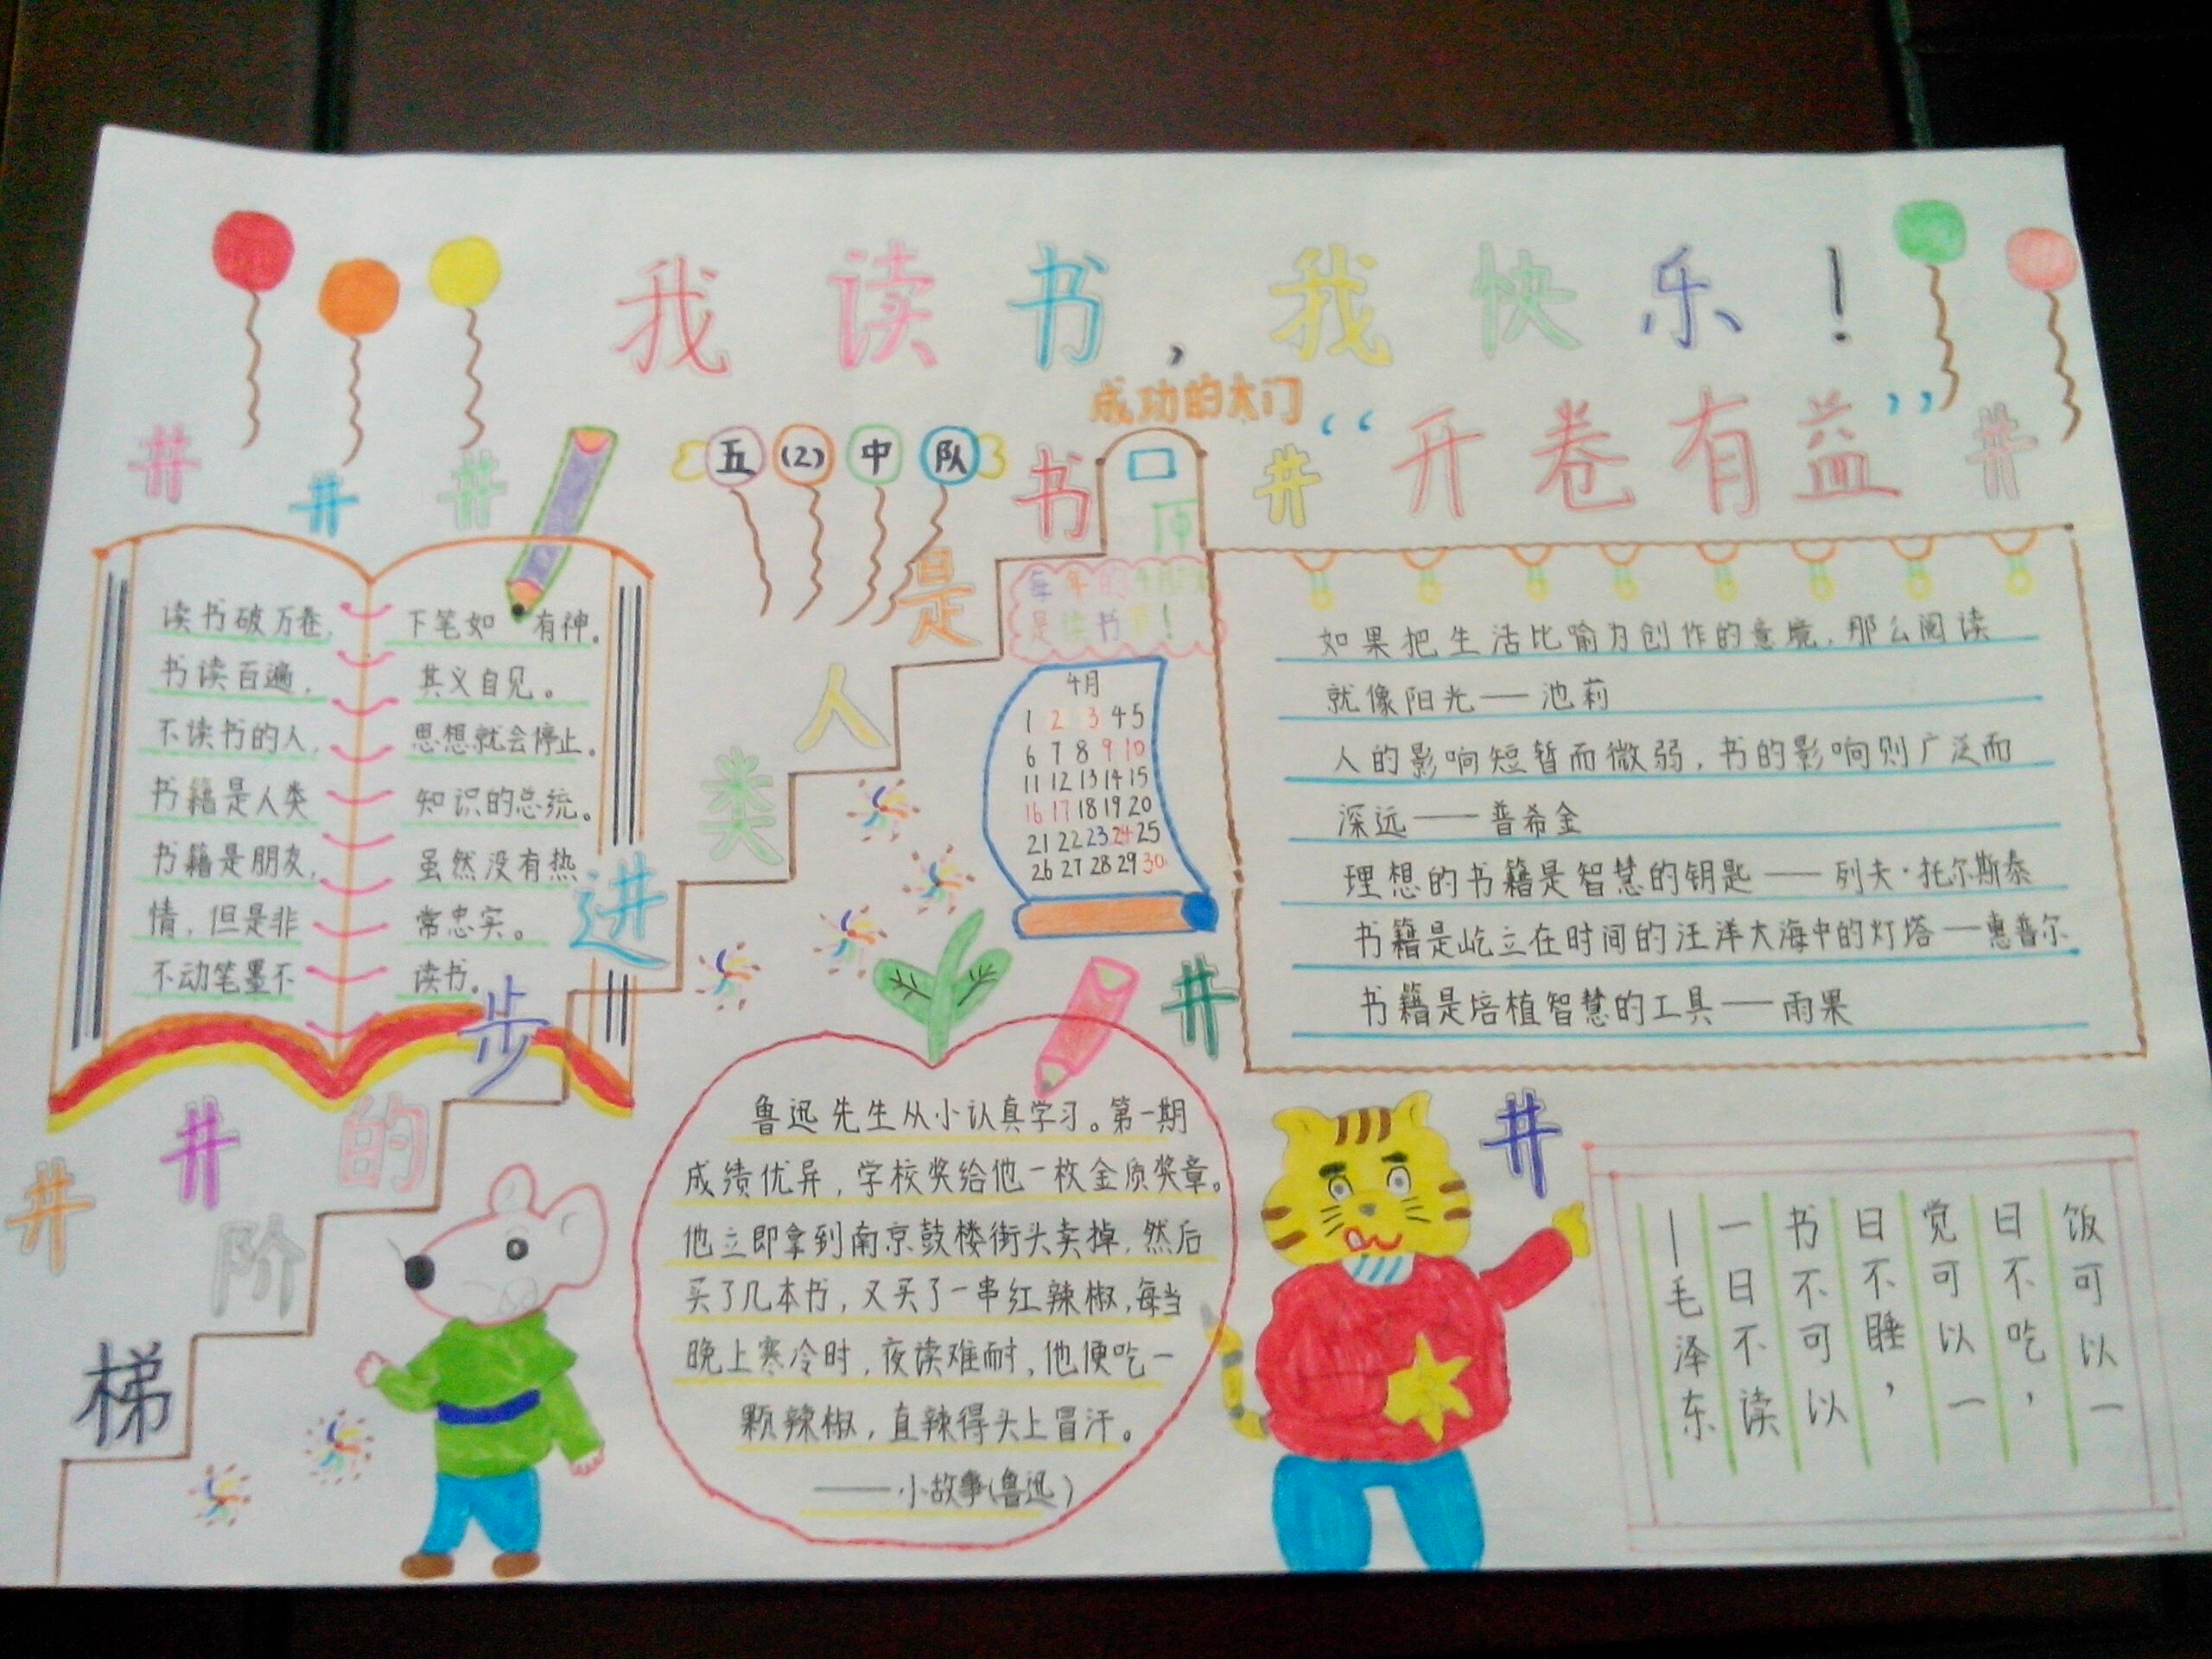 我读书，我快乐！
成功的大门
“开卷有益”
五(2)中队
书
是
人
类
进
步
的
阶
梯
读书破万卷， 下笔如有神。
书读百遍， 其义自见。
不读书的人， 思想就会停止。
书籍是人类 知识的总统。
书籍是朋友， 虽然没有热
情，但是非 常忠实。
不动笔墨不 读书。
每年的4月
是读书节！
4月
1 2 3 4 5
6 7 8 9 10
11 12 13 14 15
16 17 18 19 20
21 22 23 24 25
26 27 28 29 30
如果把生活比喻为创作的意境，那么阅读
就像阳光——池莉
人的影响短暂而微弱，书的影响则广泛而
深远——普希金
理想的书籍是智慧的钥匙——列夫·托尔斯泰
书籍是屹立在时间的汪洋大海中的灯塔—惠普尔
书籍是培植智慧的工具——雨果
鲁迅先生从小认真学习。第一期
成绩优异，学校奖给他一枚金质奖章。
他立即拿到南京鼓楼街头卖掉，然后
买了几本书，又买了一串红辣椒，每当
晚上寒冷时，夜读难耐，他便吃一
颗辣椒，直辣得头上冒汗。
——小故事(鲁迅)
饭可以一
日不吃，
觉可以一
日不睡，
书不可以
一日不读
—毛泽东